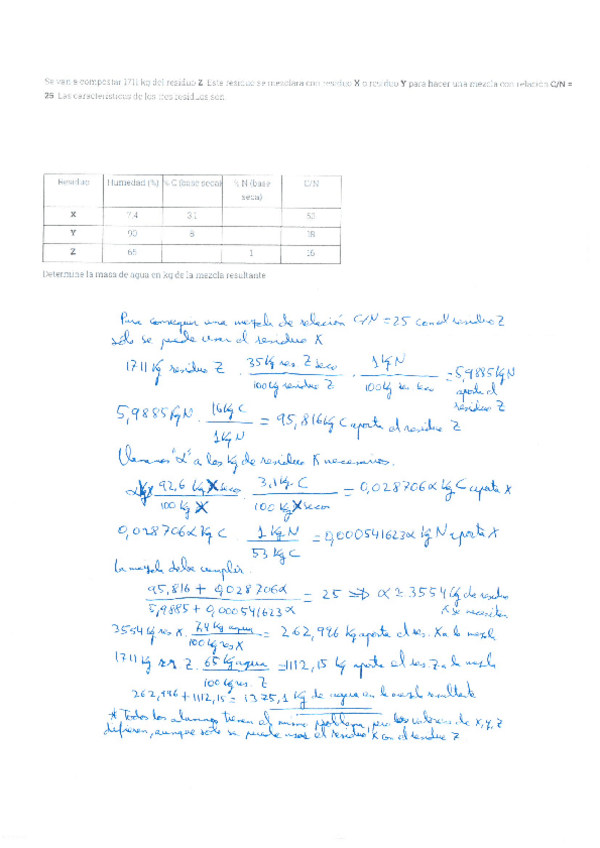 Se van a compostar 1711 kg del residuo Z. Este residuo se mezclará con residuo X o residuo Y para hacer una mezcla con relación C/N =
25. Las características de los tres residuos son:
Residuo Humedad (%) % C (base seca) % N (base seca) C/N
X 7,4 3,1 53
Y 90 8 18
Z 65 1 16
Determine la masa de agua en kg de la mezcla resultante
Para conseguir una mezcla de relación C/N = 25 con el residuo Z
sólo se puede usar el residuo X
1711 kg residuo Z . 35 kg res Z seco / 100 kg residuo Z . 1 kg N / 100 kg res seco = 5,9885 kg N aporta el residuo Z
5,9885 kg N . 16 kg C / 1 kg N = 95,816 kg C aporta el residuo Z
Llamamos "α" a los kg de residuo X necesarios.
α kg 92,6 kg X seco / 100 kg X . 3,1 kg C / 100 kg X seco = 0,028706 α kg C aporta X
0,028706 α kg C . 1 kg N / 53 kg C = 0,000541623 α kg N aporta X
La mezcla debe cumplir:
95,816 + 0,028706 α / 5,9885 + 0,000541623 α = 25 ⇒ α = 3554 kg de residuo X se necesitan
3554 kg res X . 7,4 kg agua / 100 kg res X = 262,996 kg aporta el res. X a la mezcla
1711 kg res Z . 65 kg agua / 100 kg res. Z = 1112,15 kg aporta el res Z a la mezcla
262,996 + 1112,15 = 1375,1 kg de agua en la mezcla resultante
* Todos los alumnos tienen el mismo problema, pero los valores de X, Y, Z
difieren, aunque sólo se puede usar el residuo X con el residuo Z